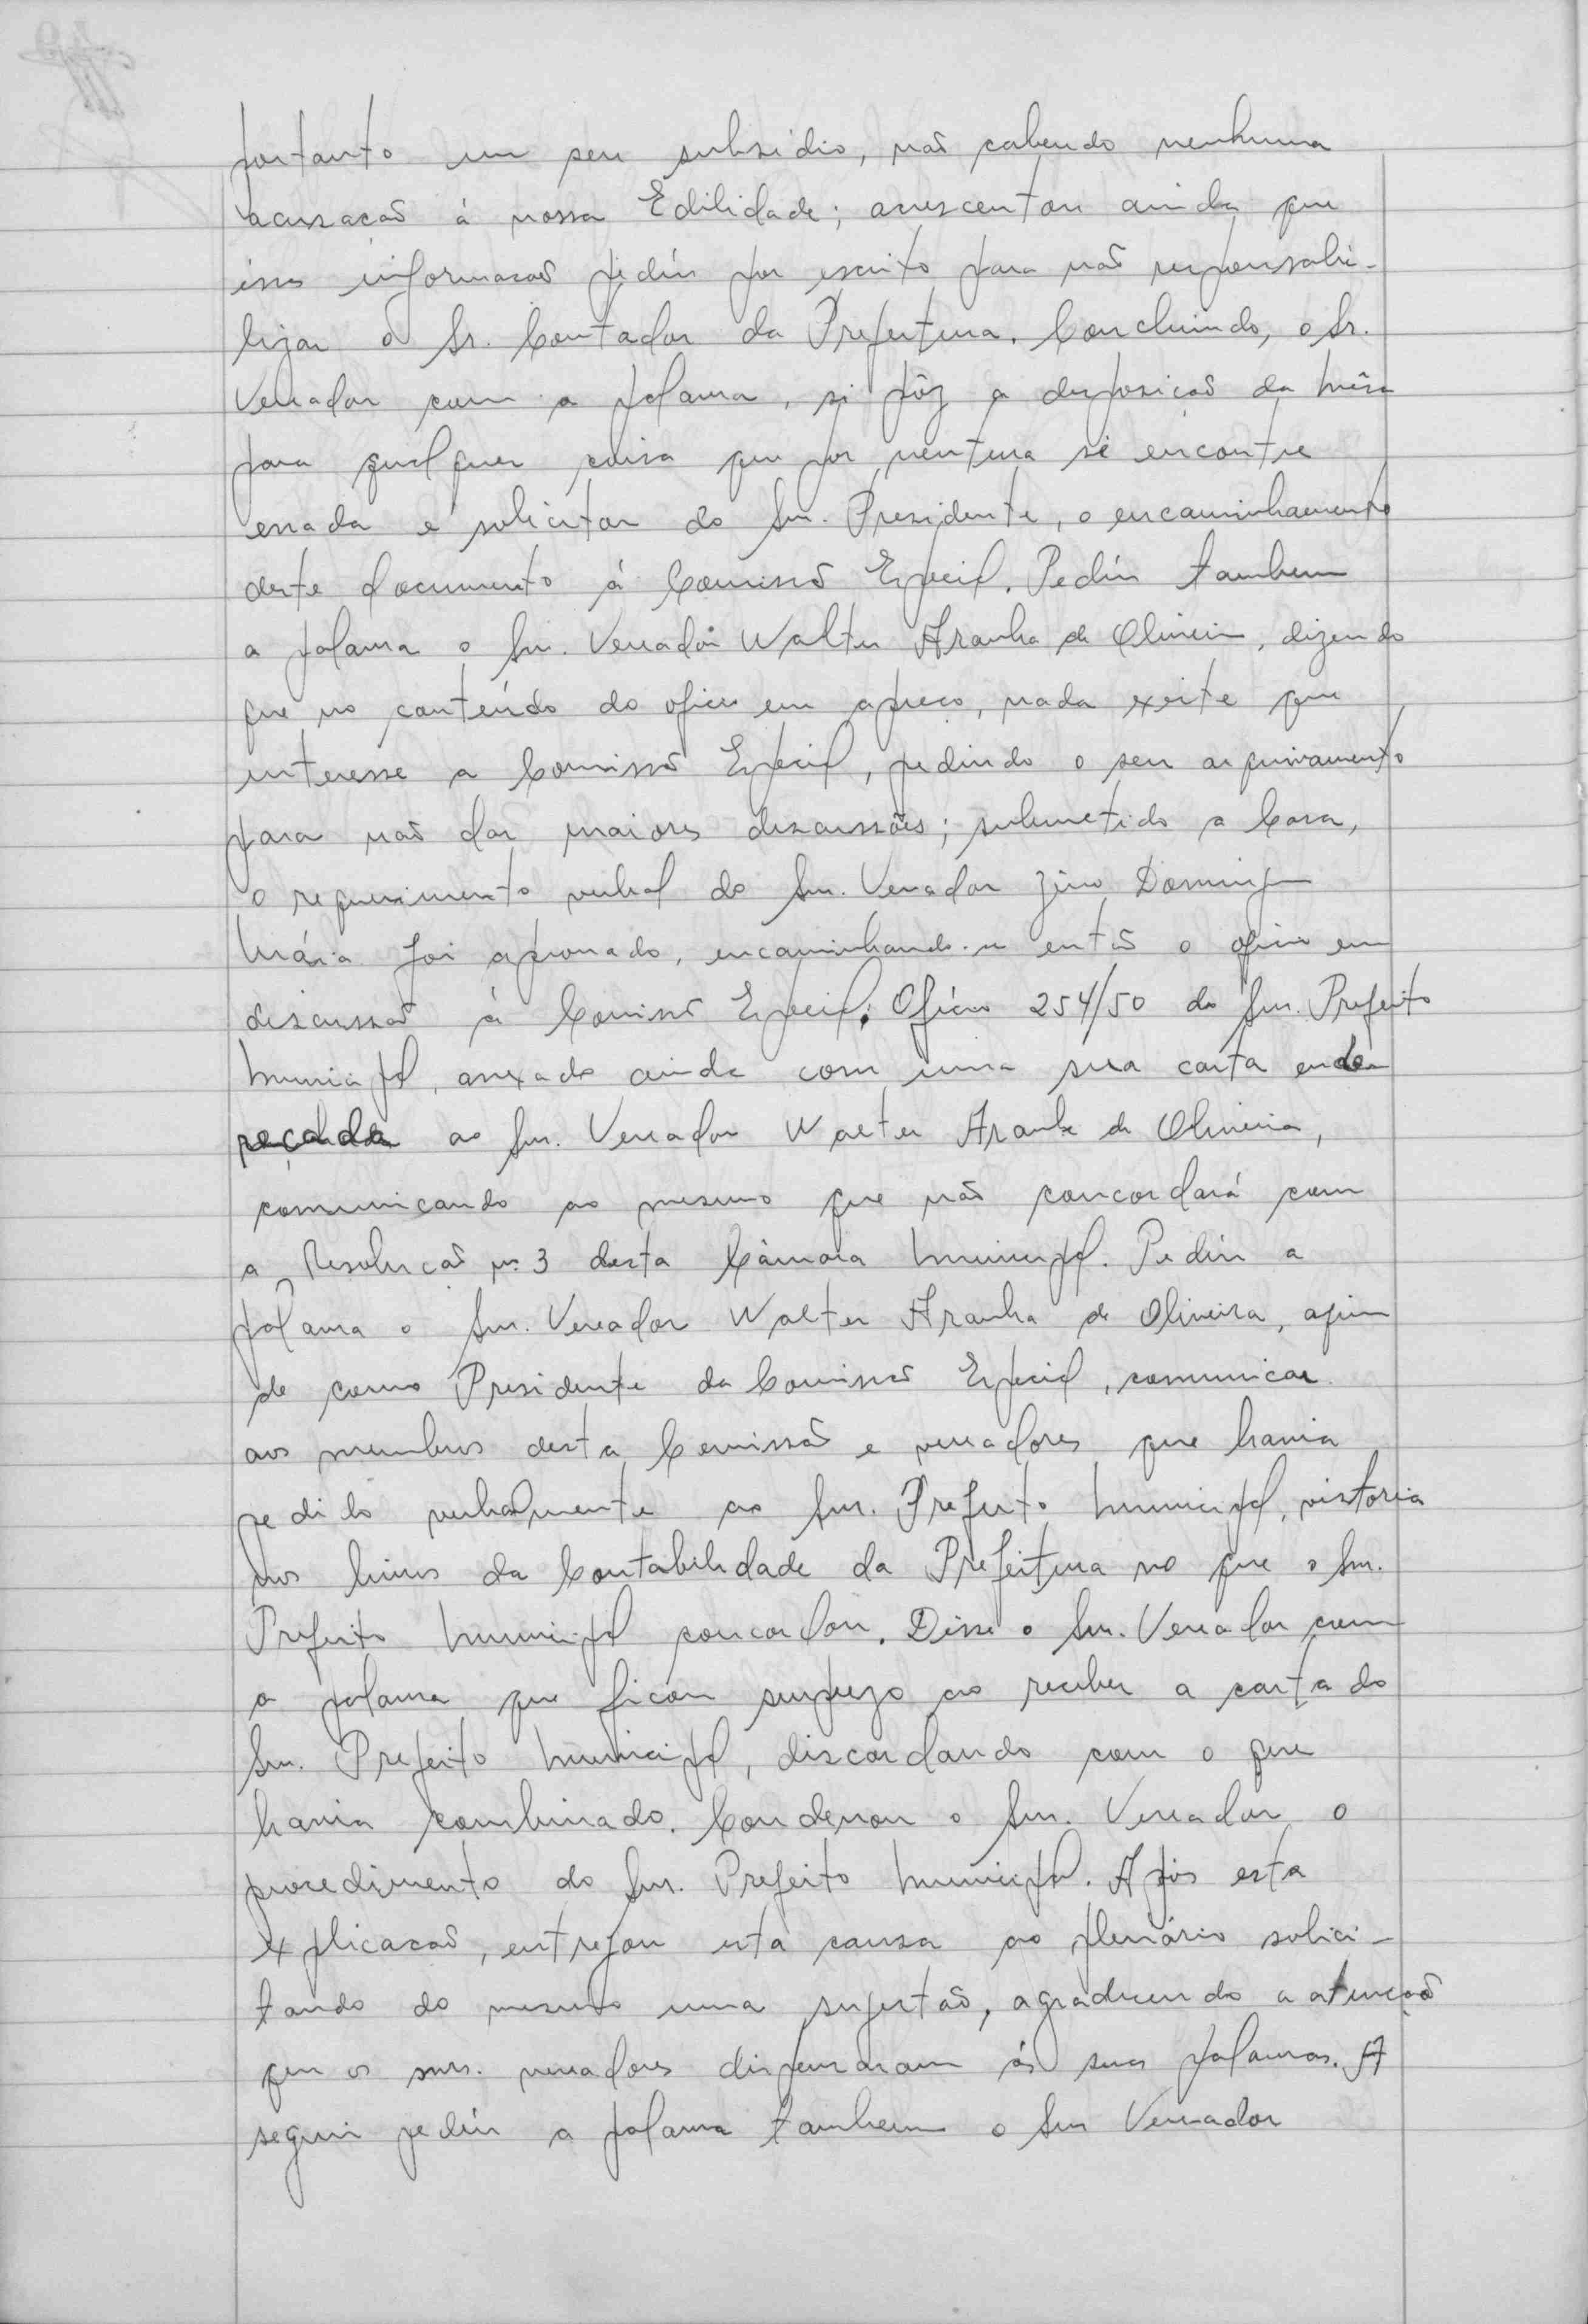 portanto um seu subsidio, não cabendo nenhuma
acusação á nossa Edilidade; acrescentou ainda que
essa informação pediu por escrito para não responsabi-
lizar o Sr. Contador da Prefeitura. Concluindo, o Sr.
Vereador com a palavra, si pôz a desposição da mêsa
para qualquer coisa que por ventura se encontre
errada e solicitou do Snr. Presidente, o encaminhamento
deste documento á Comissão Especial. Pediu tambem
a palavra o Snr. Vereador Walter Aranha de Oliveira, dizendo
que no conteúdo do oficio em apreço, nada existe que
interesse a Comissão Especial, pedindo o seu arquivamento
para não dar maiores discussões; submetido a Casa,
o requerimento verbal do Snr. Vereador Domingos
Mária foi aprovado, encaminhando-se então o oficio em
discussão á Comissão Especial. Ofício 254/50 do Snr. Prefeito
Municipal, anexado ainda com uma sua carta ende
reçada ao Snr. Vereador Walter Aranha de Oliveira,
comunicando ao mesmo que não concordará com
a Resolução nº 3 desta Câmara Municipal. Pediu a
palavra o Snr. Vereador Walter Aranha de Oliveira, afim
de como Presidente da Comissão Especial, comunicar
aos membros desta Comissão e vereadores que havia
pedido verbalmente ao Snr. Prefeito Municipal, vistoria
nos livros da Contabilidade da Prefeitura no que o Snr.
Prefeito Municipal concordou. Disse o Snr. Vereador com
a palavra que ficou surprezo ao receber a carta do
Snr. Prefeito Municipal, discordando com o que
havia combinado. Condenou o Snr. Vereador o
procedimento do Snr. Prefeito Municipal. Após esta
explicação, entregou esta causa ao plenário solici-
tando do mesmo uma sugestão, agradecendo a atenção
que os snrs. vereadores dispensaram ás suas palavras. A
seguir pediu a palavra tambem o Snr Vereador